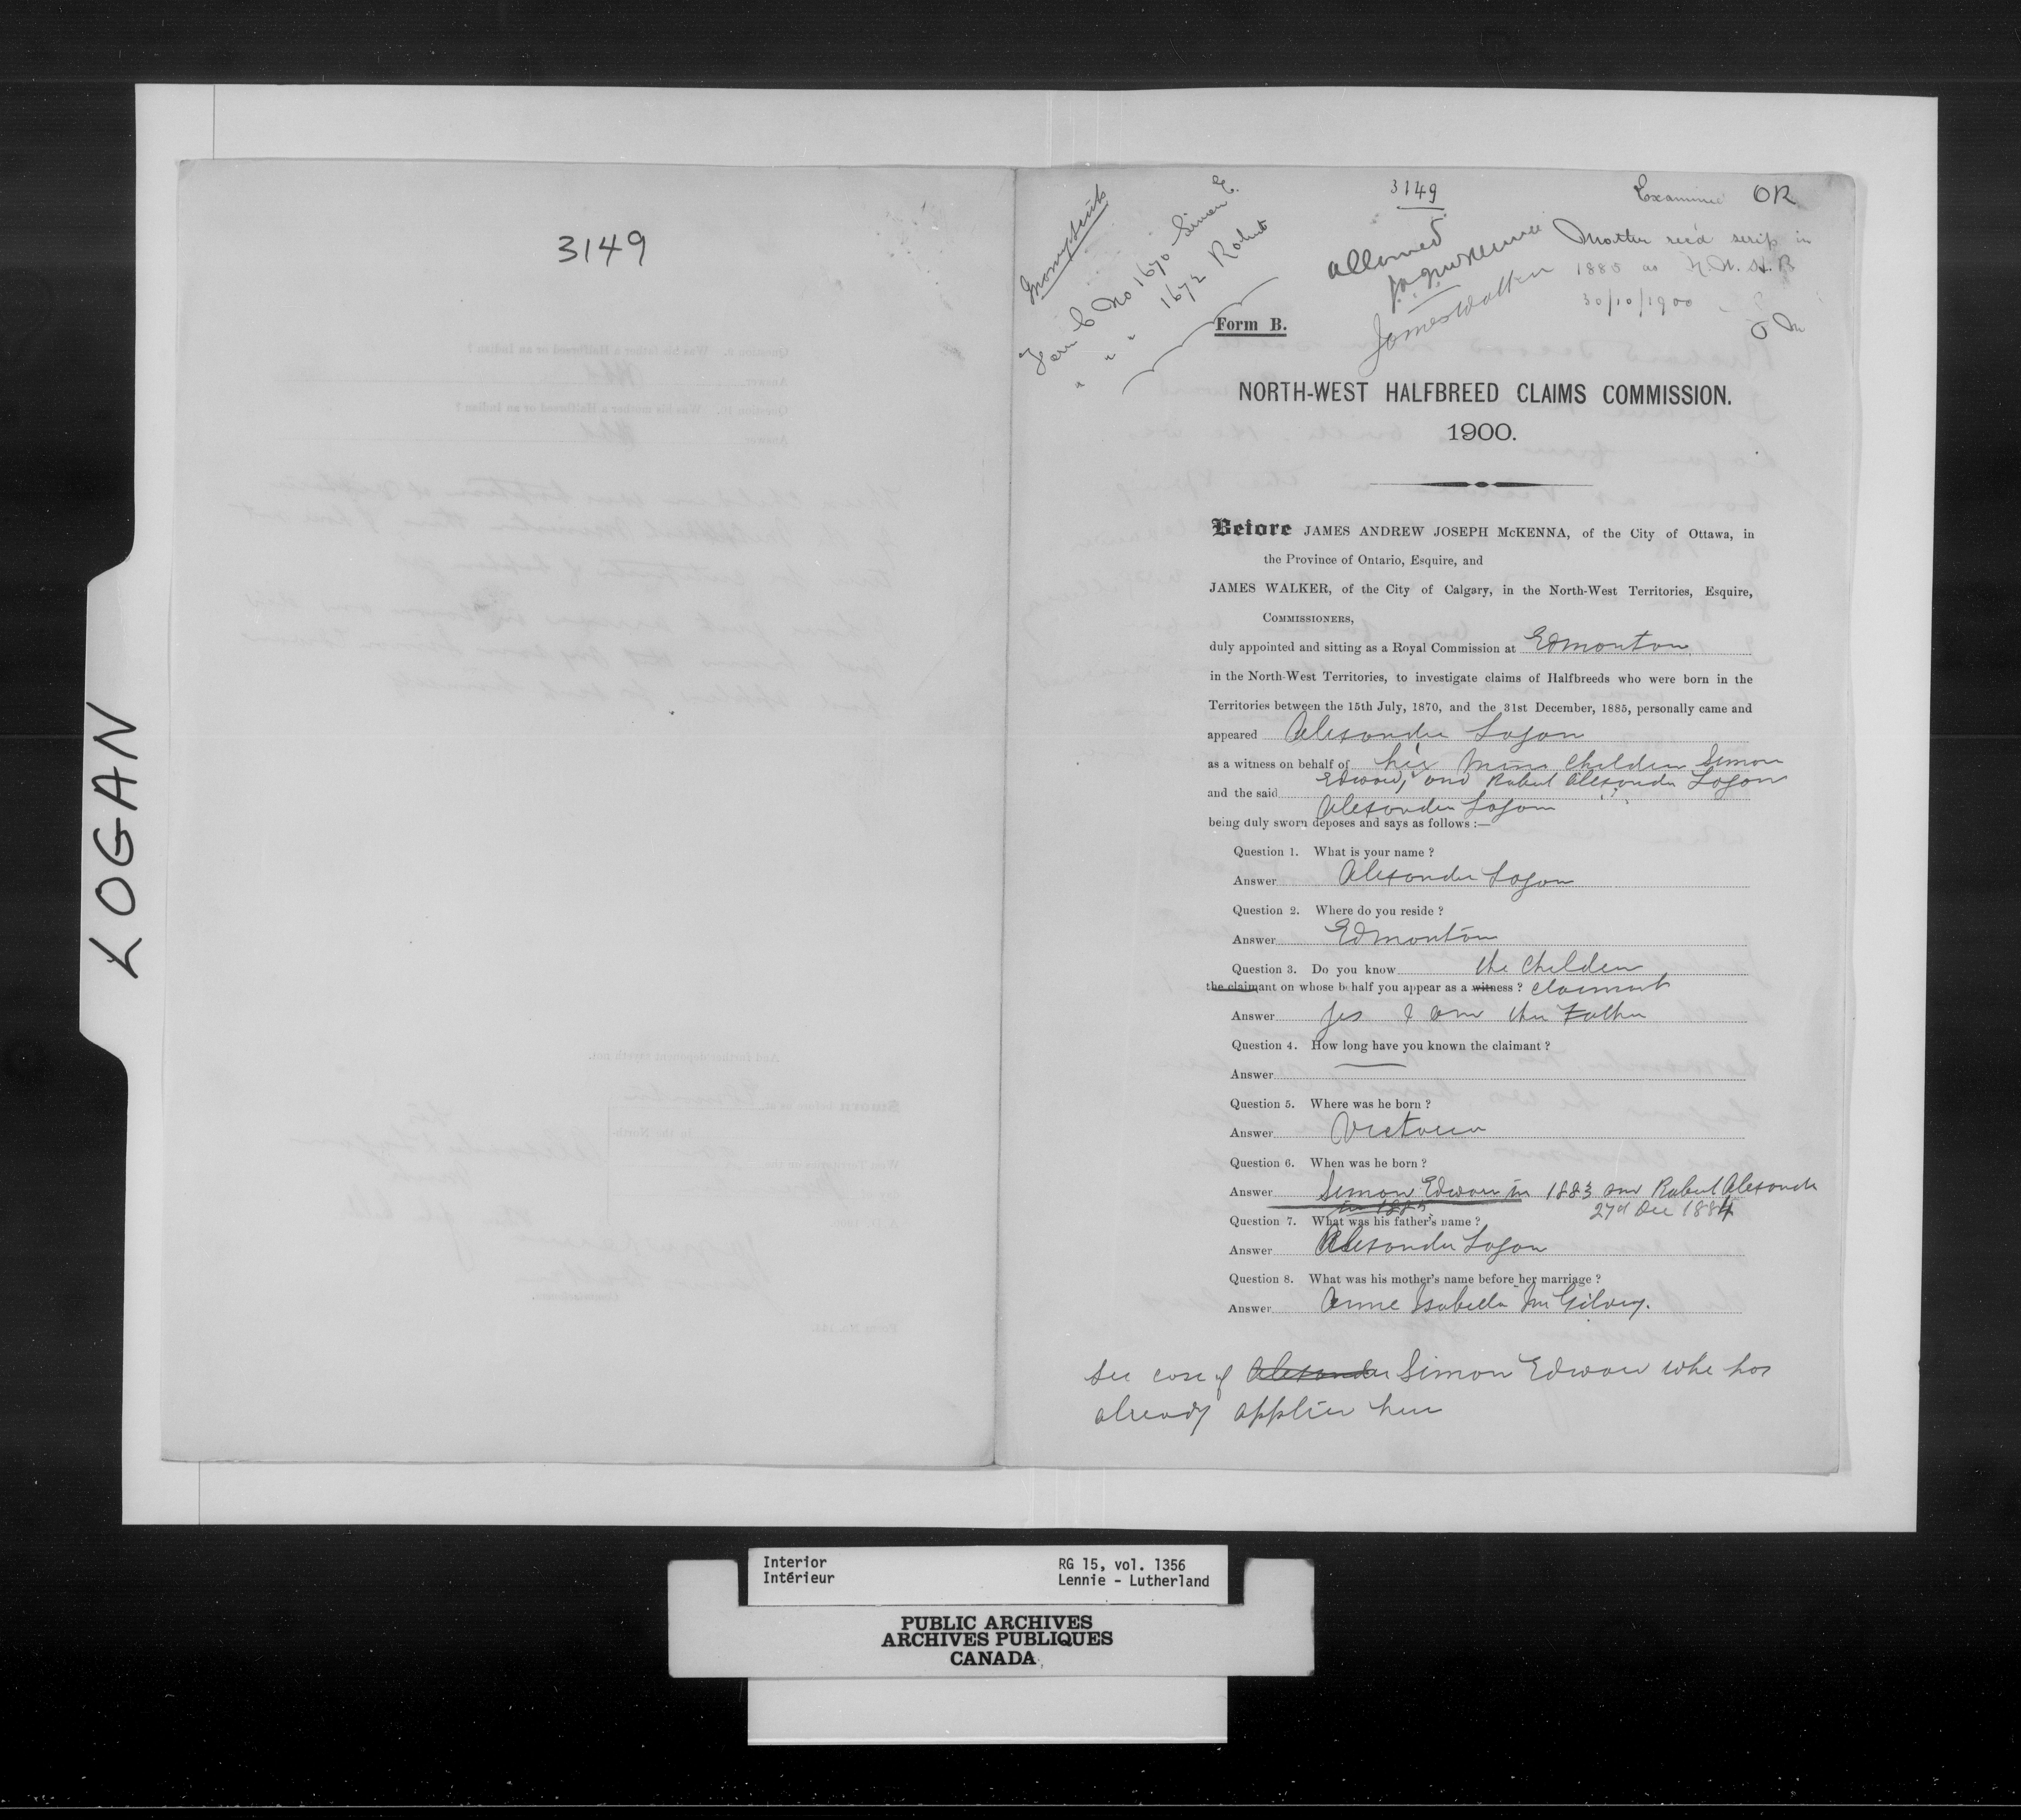 3149
LOGAN
3149
Examined OR
Money scrip
Form C No 1670 Simon E.
" " 1672 Robert
allowed
J.A.J. McKenna
James Walker
Mother rec'd scrip in
1885 as N.W.H.B
30/10/1900
Form B.
NORTH-WEST HALFBREED CLAIMS COMMISSION.
1900.
Before JAMES ANDREW JOSEPH McKENNA, of the City of Ottawa, in
the Province of Ontario, Esquire, and
JAMES WALKER, of the City of Calgary, in the North-West Territories, Esquire,
COMMISSIONERS,
duly appointed and sitting as a Royal Commission at Edmonton
in the North-West Territories, to investigate claims of Halfbreeds who were born in the
Territories between the 15th July, 1870, and the 31st December, 1885, personally came and
appeared Alexander Logan
as a witness on behalf of his minor children Simon
Edward, and Robert Alexander Logan
and the said Alexander Logan
being duly sworn deposes and says as follows :—
Question 1. What is your name ?
Answer Alexander Logan
Question 2. Where do you reside ?
Answer Edmonton
Question 3. Do you know the children
the claimant on whose behalf you appear as a witness ? claimant
Answer Yes I am the Father
Question 4. How long have you known the claimant ?
Answer
Question 5. Where was he born ?
Answer Victoria
Question 6. When was he born ?
Answer Simon Edward in 1883 and Robert Alexander
in 1885 27th Dec 1884
Question 7. What was his father's name ?
Answer Alexander Logan
Question 8. What was his mother's name before her marriage ?
Answer Anne Isabella McGilvry.
See case of Alexander Simon Edward who has
already applied here
Interior RG 15, vol. 1356
Intérieur Lennie - Lutherland
PUBLIC ARCHIVES
ARCHIVES PUBLIQUES
CANADA